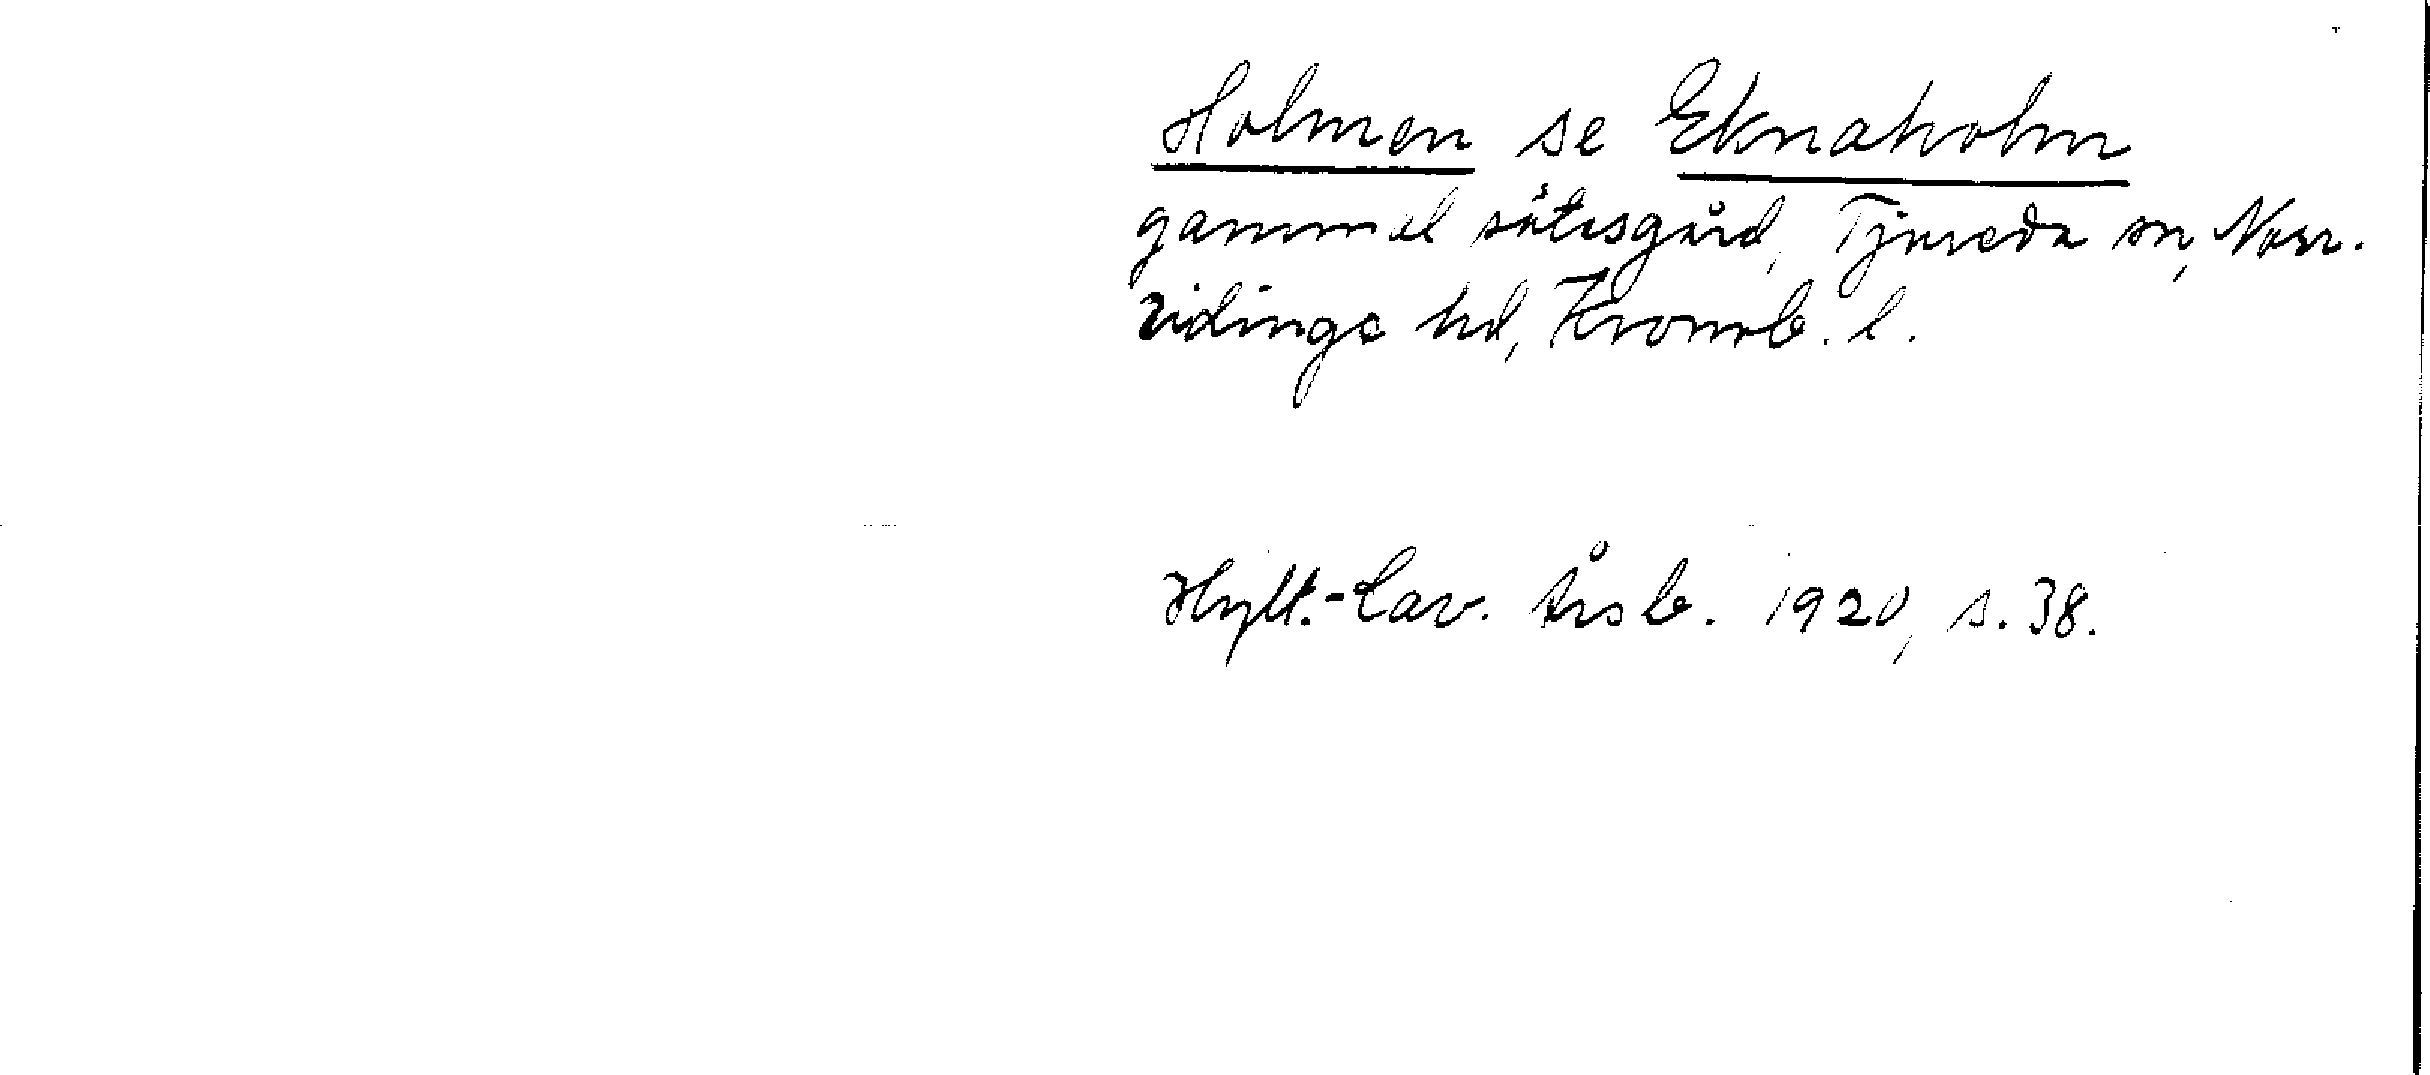 Holmen se Eknaholm
gammal sätesgård, Tjureda sn, Norr-
vidinge hd, Kronob. l.
Hylt.-Cav. Årsb. 1920, s. 38.